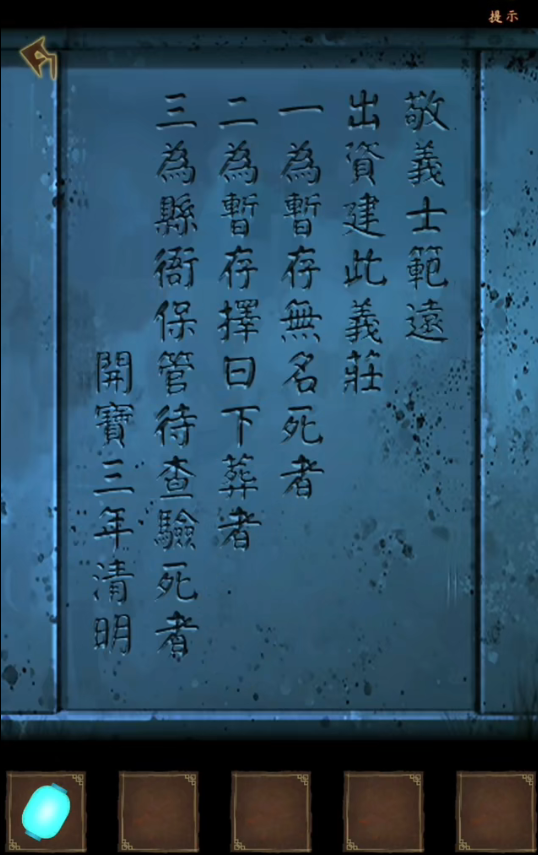 提示
敬義士範遠
出資建此義莊
一為暫存無名死者
二為暫存擇日下葬者
三為縣衙保管待查驗死者
開寶三年清明